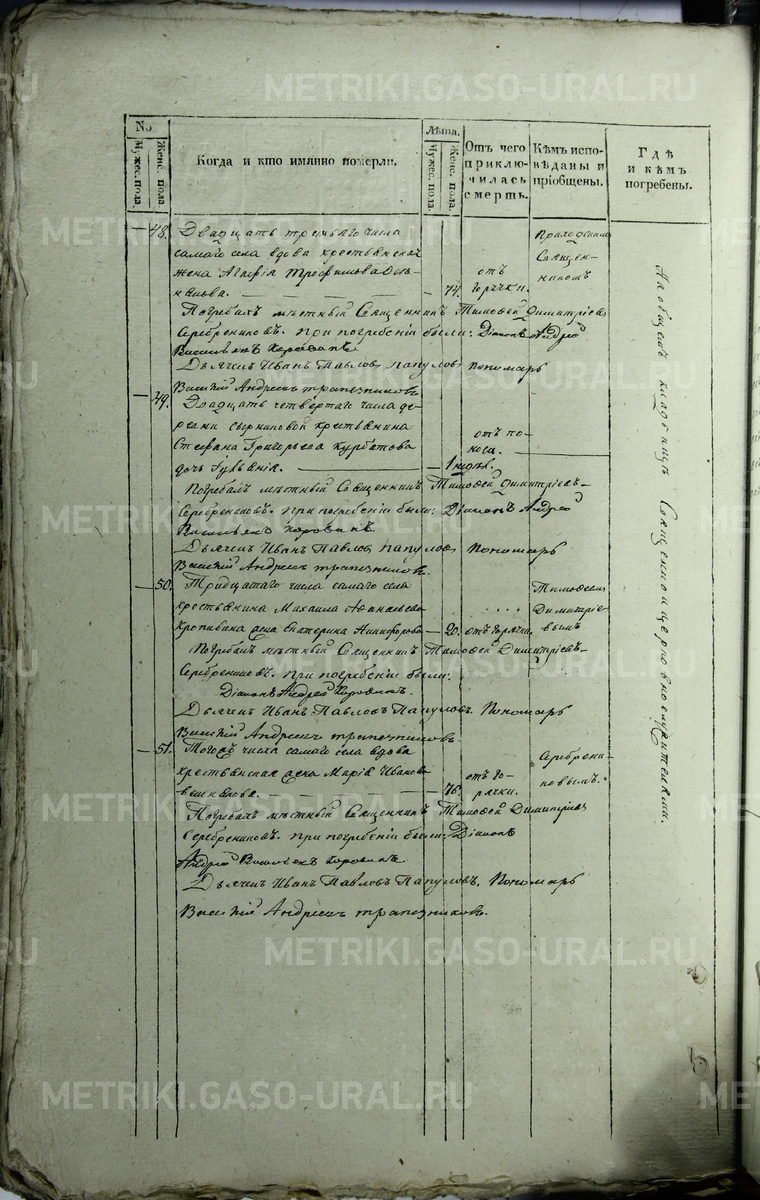 METRIKI.GASO-URAL.RU
№
Мужес. пола.
Женс. пола.
Когда и кто имянно померли.
Лѣта.
Мужес. пола.
Женс. пола.
Отъ чего приклю-чилась смерть.
Кѣмъ испо-вѣданы и пріобщены.
Гдѣ и кѣмъ погребены.
48. Двадцать третьяго числа
самаго села вдова крестьянская
жена Агафія Трофимова
74. отъ горячки.
Приходскимъ Священ-никомъ
Погребалъ мѣстный Священникъ Тимофей Димитріевъ
Серебрениковъ. при погребеніи были: Діаконъ Андрей
Васильевъ Коровинъ
Дьячекъ Иванъ Павловъ Папуловъ Пономарь
Василій Андреевъ Трапезниковъ
49. Двадцать четвертаго числа де-
ревни крестьянина
Стефана Григорьева Курбатова
дочь
1 недѣл. отъ по-носа.
Погребалъ мѣстный Священникъ Тимофей Димитріевъ
Серебрениковъ. при погребеніи были: Діаконъ Андрей
Васильевъ Коровинъ
Дьячекъ Иванъ Павловъ Папуловъ Пономарь
Василій Андреевъ Трапезниковъ
50. Тридцатаго числа самаго села
крестьянина Михаила Афанасьева
Кропивина жена Екатерина Никифорова
20. отъ горячки.
Тимофеемъ Димитріе-вымъ
Погребалъ мѣстный Священникъ Тимофей Димитріевъ
Серебрениковъ. при погребеніи были:
Діаконъ Андрей Коровинъ.
Дьячекъ Иванъ Павловъ Папуловъ. Пономарь
Василій Андреевъ Трапезниковъ
51. Тогожъ числа самаго села вдова
крестьянская жена Марія Иванова
76. отъ го-рячки.
Серебрени-ковымъ.
Погребалъ мѣстный Священникъ Тимофей Димитріевъ
Серебрениковъ. при погребеніи были: Діаконъ
Андрей Васильевъ Коровинъ.
Дьячекъ Иванъ Павловъ Папуловъ. Пономарь
Василій Андреевъ Трапезниковъ.
На общемъ кладбищѣ Священно и церковнослужителями.